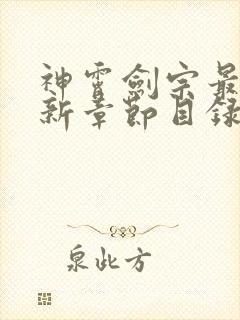 神霄劍宗最
新章節目錄
泉此方